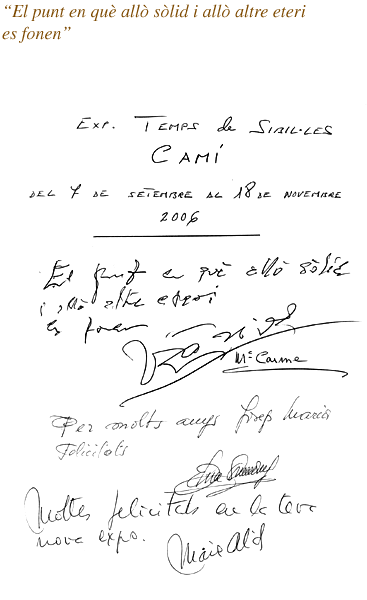 “El punt en què allò sòlid i allò altre eteri
es fonen”
EXP. TEMPS de SIBIL·LES
CAMÍ
DEL 7 DE SETEMBRE AL 18 DE NOVEMBRE
2006
El punt en què allò sòlid
i allò altre eteri
es fonen
Mª Carme
Per molts anys Josep Maria
Felicitats
Moltes felicitats en la teva
nova expo.